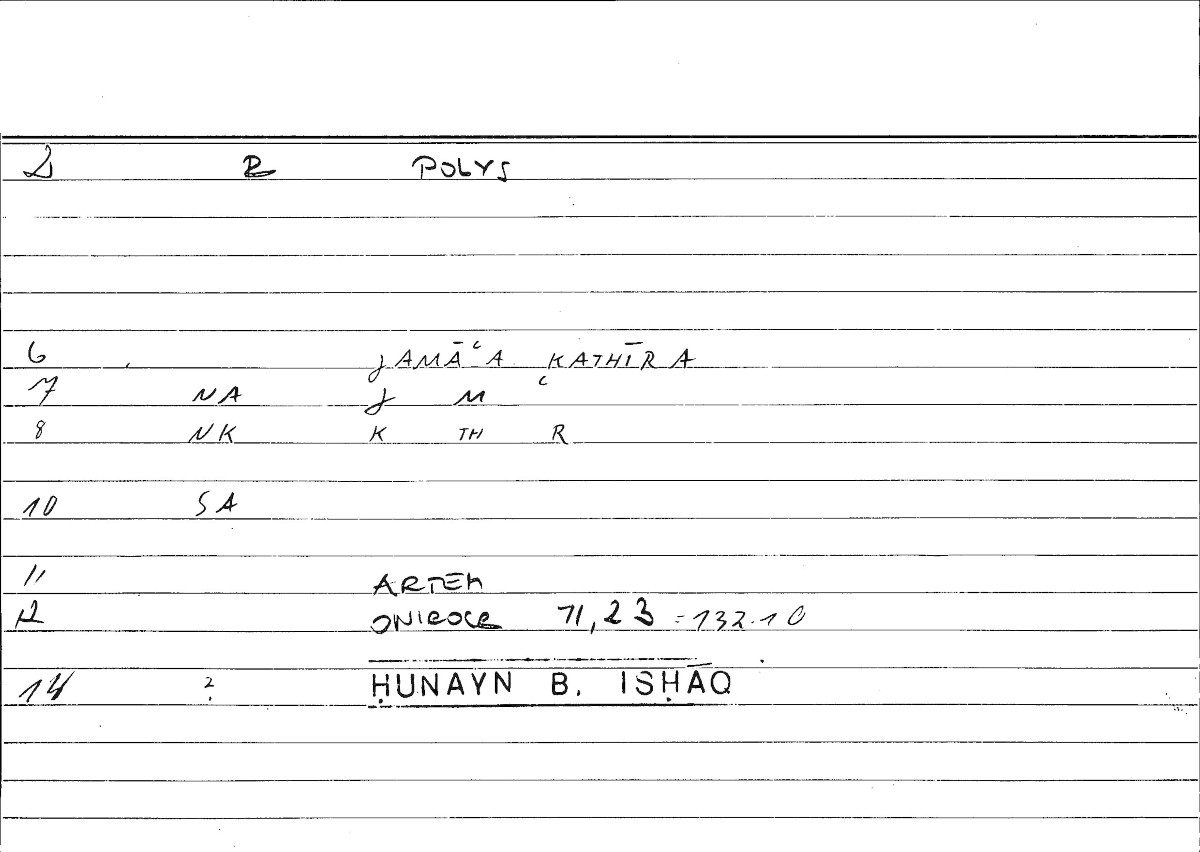 2 R POLYS
6 JAMĀʿA KATHĪRA
7 NA J M ʿ
8 NK K TH R
10 SA
11 ARTEM
12 ONIROCR 71,23 = 132.10
14 2 ḤUNAYN B. ISḤĀQ